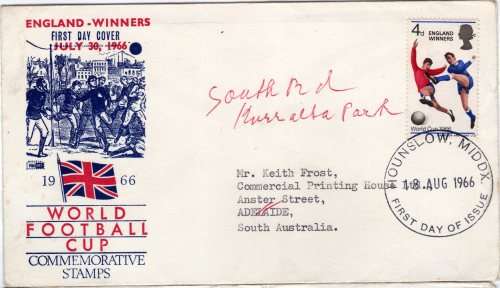 ENGLAND-WINNERS
FIRST DAY COVER
JULY 30, 1966
1966
WORLD
FOOTBALL
CUP
COMMEMORATIVE
STAMPS
South Rd
Kurralta Park
4d ENGLAND
WINNERS
World Cup 1966
Mr. Keith Frost,
Commercial Printing House
Anster Street,
ADELAIDE,
South Australia.
HOUNSLOW, MIDDX.
18 AUG 1966
FIRST DAY OF ISSUE